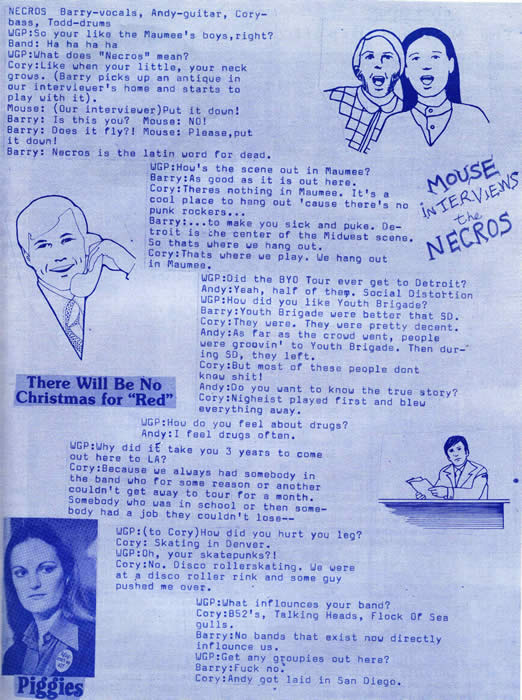 NECROS  Barry-vocals, Andy-guitar, Cory-
bass, Todd-drums
WGP:So your like the Maumee's boys,right?
Band: Ha ha ha ha
WGP:What does "Necros" mean?
Cory:Like when your little, your neck
grows. (Barry picks up an antique in
our interviewer's home and starts to
play with it).
Mouse: (Our interviewer)Put it down!
Barry: Is this you?  Mouse: NO!
Barry: Does it fly?! Mouse: Please,put
it down!
Barry: Necros is the latin word for dead.
WGP:How's the scene out in Maumee?
Barry:As good as it is out here.
Cory:Theres nothing in Maumee. It's a
cool place to hang out 'cause there's no
punk rockers...
Barry:...to make you sick and puke. De-
troit is the center of the Midwest scene.
So thats where we hang out.
Cory:Thats where we play. We hang out
in Maumee.
MOUSE
INTERVIEWS
the
NECROS
WGP:Did the BYO Tour ever get to Detroit?
Andy:Yeah, half of them. Social Distortion
WGP:How did you like Youth Brigade?
Barry:Youth Brigade were better that SD.
Cory:They were. They were pretty decent.
Andy:As far as the crowd went, people
were groovin' to Youth Brigade. Then dur-
ing SD, they left.
Cory:But most of these people dont
know shit!
Andy:Do you want to know the true story?
Cory:Nigheist played first and blew
everything away.
There Will Be No
Christmas for "Red"
WGP:How do you feel about drugs?
Andy:I feel drugs often.
WGP:Why did it take you 3 years to come
out here to LA?
Cory:Because we always had somebody in
the band who for some reason or another
couldn't get away to tour for a month.
Somebody who was in school or then some-
body had a job they couldn't lose--
WGP:(to Cory)How did you hurt you leg?
Cory: Skating in Denver.
WGP:Oh, your skatepunks?!
Cory:No. Disco rollerskating. We were
at a disco roller rink and some guy
pushed me over.
WGP:What influnces your band?
Cory:B52's, Talking Heads, Flock Of Sea
gulls.
Barry:No bands that exist now directly
influnce us.
WGP:Get any groupies out here?
Barry:Fuck no.
Cory:Andy got laid in San Diego.
Piggies